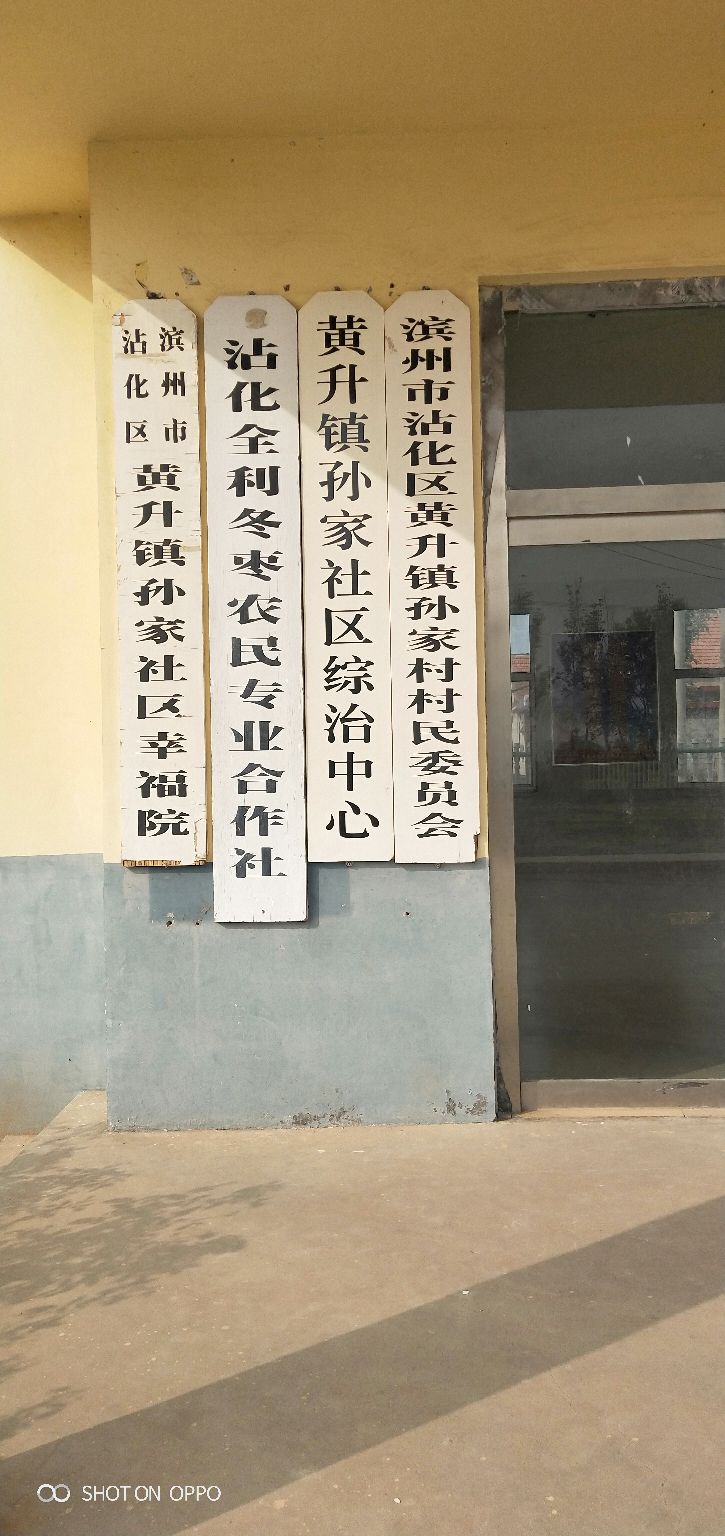 滨州市
沾化区
黄升镇孙家社区幸福院
沾化全利冬枣农民专业合作社
黄升镇孙家社区综治中心
滨州市沾化区黄升镇孙家村村民委员会
SHOT ON OPPO